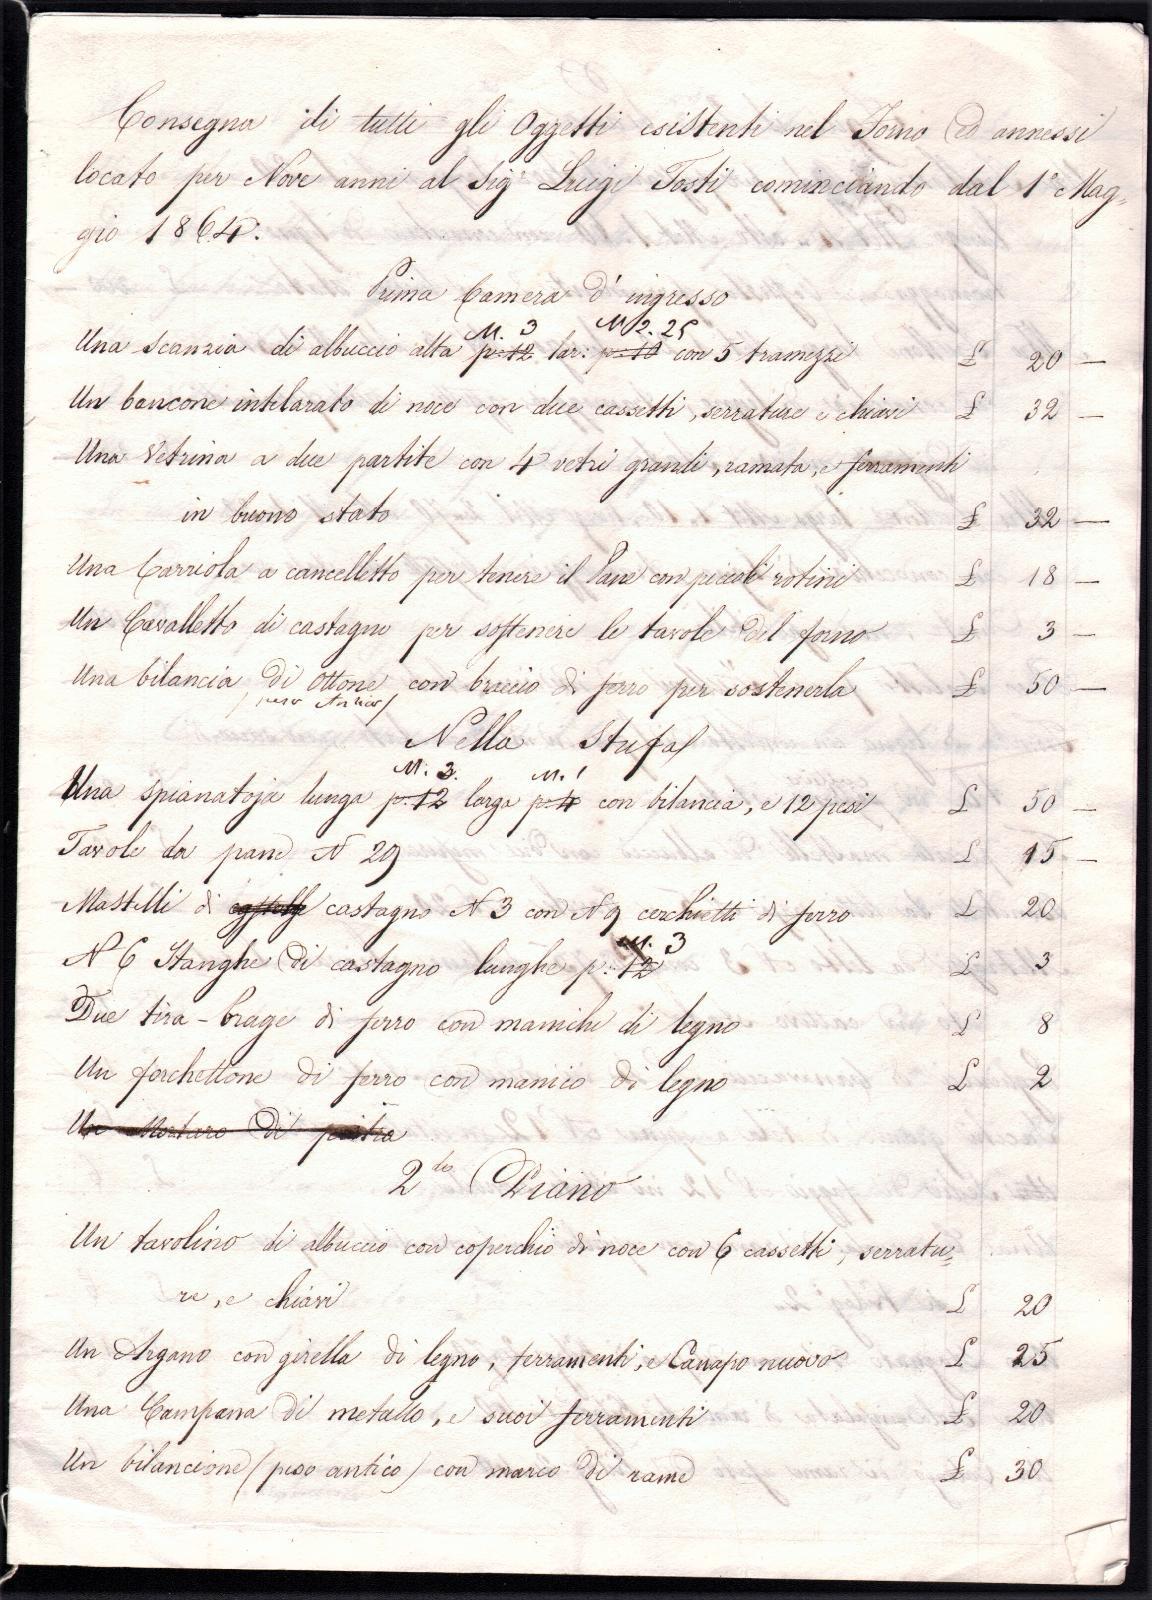 Consegna di tutti gli Oggetti esistenti nel Forno ed annessi
locato per Nove anni al Sig.r Luigi Tosti cominciando dal 1° Mag=
gio 1864.
Prima Camera d'ingresso
M. 3 M 2. 25
Una scanzia di albuccio alta p: 12 lar: p: 10 con 5 tramezzi £ 20 —
Un bancone intelarato di noce con due cassetti, serrature e chiavi £ 32 —
Una Vetrina a due partite con 4 vetri grandi, ramata, e ferramenti
in buono stato £ 32 —
Una Carriola a cancelletto per tenere il Pane con piccoli rotini £ 18 —
Un Cavalletto di castagno per sostenere le tavole del forno £ 3 —
Una bilancia di Ottone con braccio di ferro per sostenerla £ 50 —
Nella Stufa
M. 3. M. 1
Una spianatoja lunga p: 12 larga p: 4 con bilancia, e 12 pesi £ 50 —
Tavole da pane N 29 £ 15 —
Mastelli di castagno N 3 con N 9 cerchietti di ferro £ 20
M. 3
N 6 Stanghe di castagno lunghe p: 12 £ 3
Due tira-brage di ferro con maniche di legno £ 8
Un forchettone di ferro con manico di legno £ 2
Un Mortaro di pietra
2do Piano
Un tavolino di albuccio con coperchio di noce con 6 cassetti, serratu=
re, e chiavi £ 20
Un Argano con girella di legno, ferramenti, e Canapo nuovo £ 25
Una Campana di metallo, e suoi ferramenti £ 20
Un bilancione (peso antico) con marco di rame £ 30